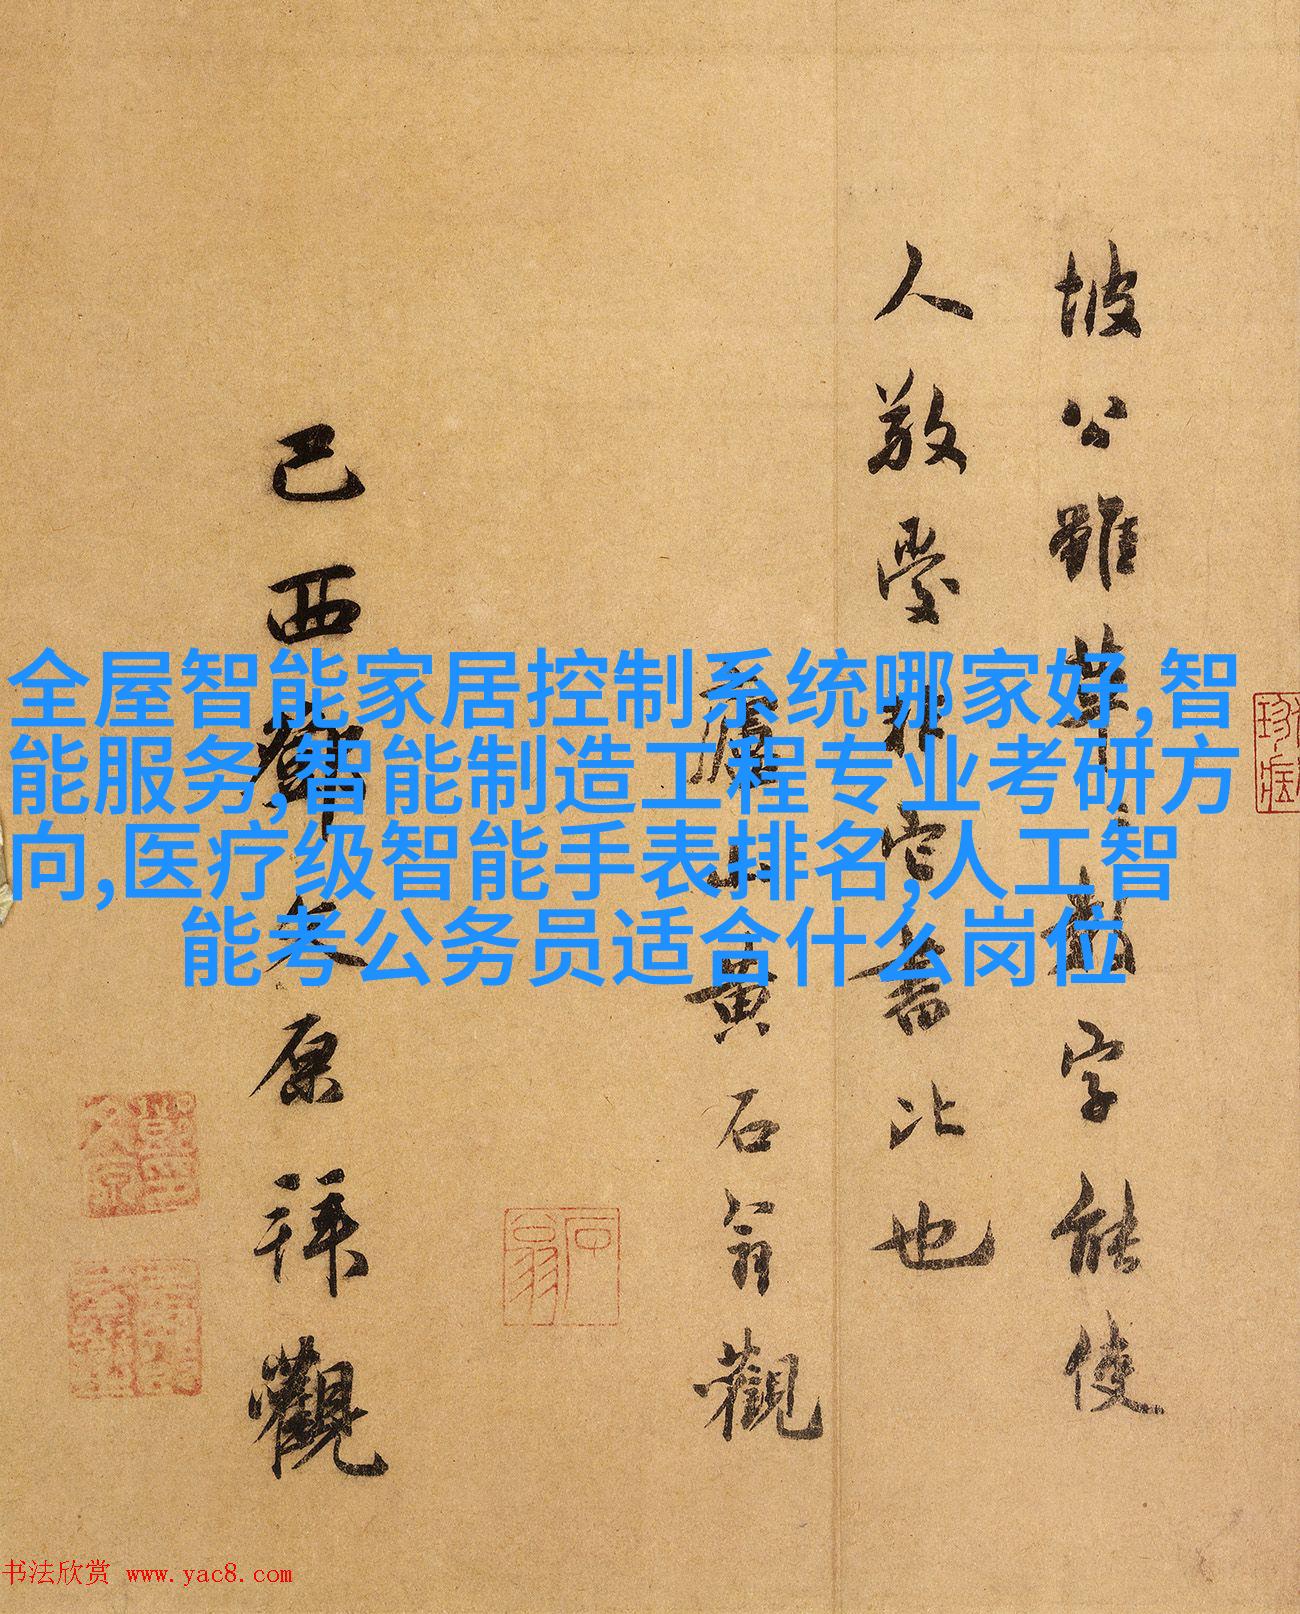 坡公雖草草數字能使
人敬愛非它書比也
廬山黃石翁觀
石翁
巴西鄧文原拜觀
全屋智能家居控制系统哪家好,智
能服务,智能制造工程专业考研方
向,医疗级智能手表排名,人工智
能考公务员适合什么岗位
书法欣赏 www.yac8.com